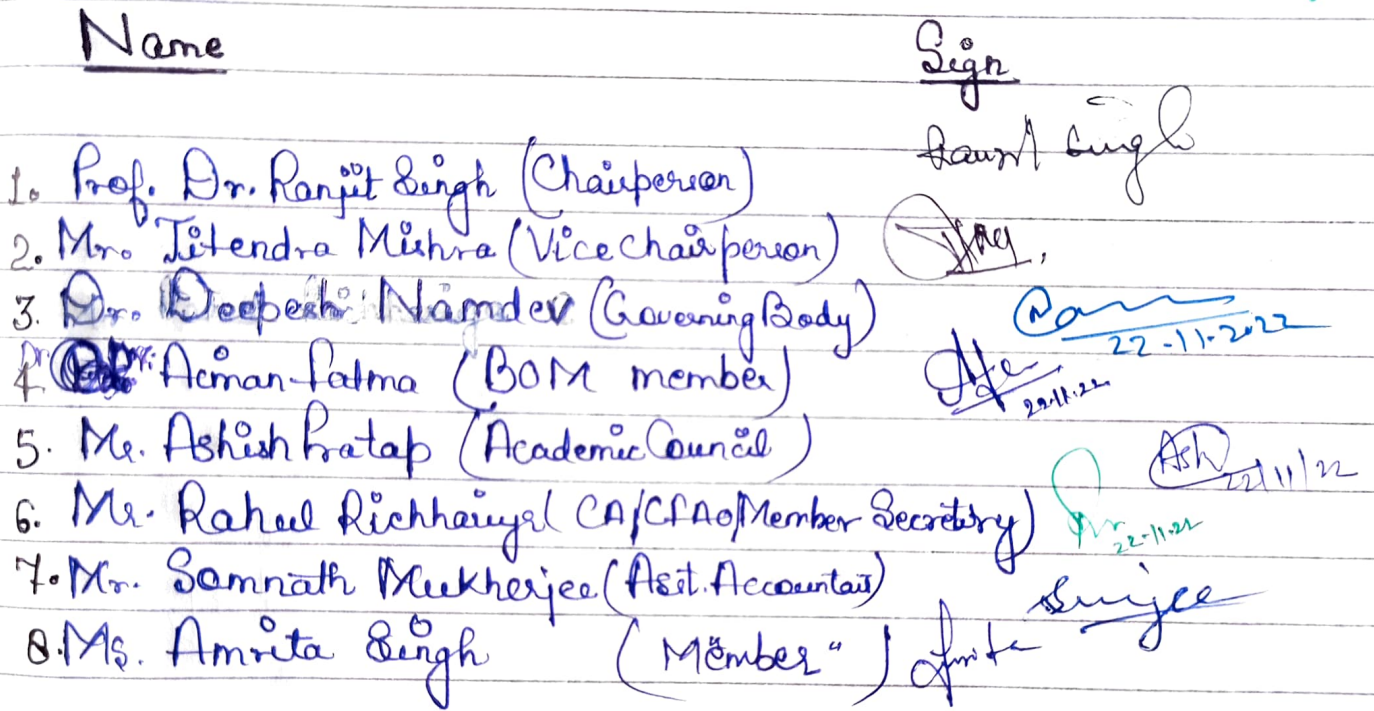 Name Sign
1. Prof. Dr. Ranjit Singh (Chairperson)
2. Mr. Jitendra Mishra (Vice Chairperson)
3. Dr. Deepesh Namdev (Governing Body) 22-11-2022
4. Dr. Aiman Fatma (BOM member) 22.11.22
5. Mr. Ashish Pratap (Academic Council) Ash 22/11/22
6. Mr. Rahul Richhariya (CA/CFAO/Member Secretary) 22-11-22
7. Mr. Somnath Mukherjee (Asst. Accountant)
8. Ms. Amrita Singh (Member) Amrita